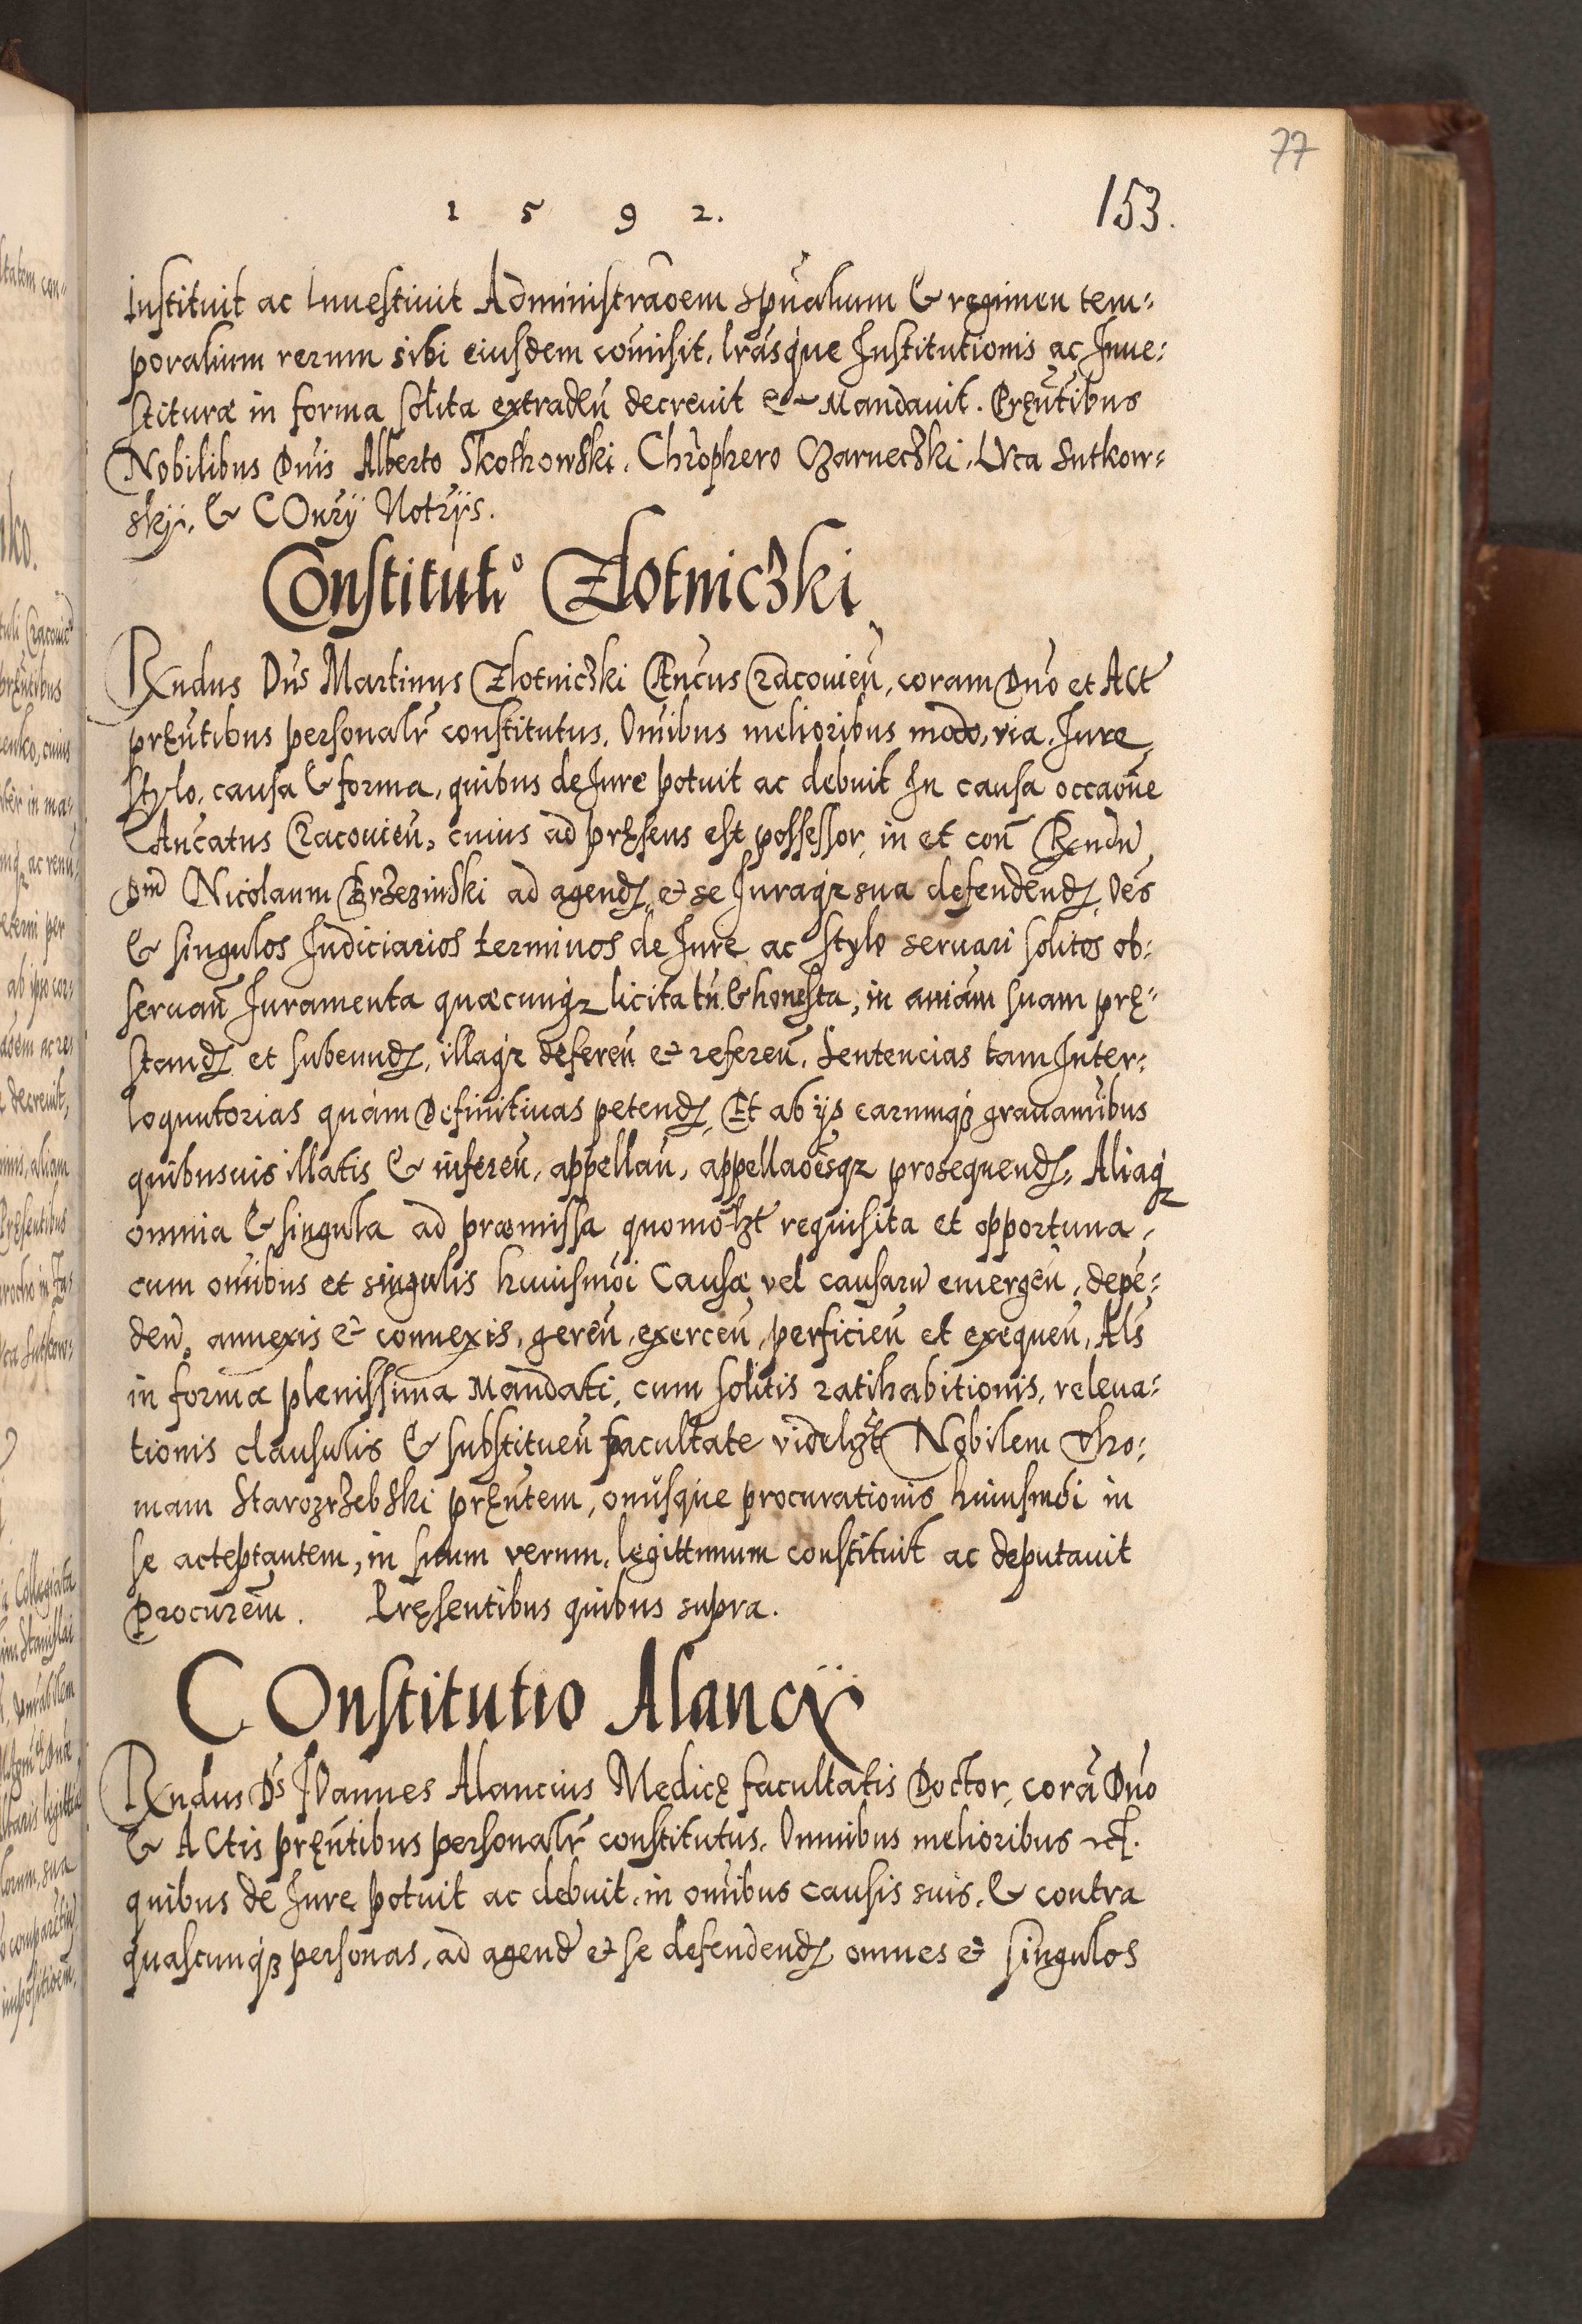 77
1592.
153.
Instituit ac Inuestiuit Administrãoem spũalium & regimen tem=
poralium rerum sibi eiusdem com̃isit, lr̃asque Institutionis ac Inue=
stituræ in forma solita extradeñ decreuit et Mandauit. Pręñtibus
Nobilibus Dñis Alberto Skothowski, Chr̃ophero Czarneczki, LVca Sutkow=
skij, & COnr̃ij Notr̃ijs.
Constitutio Zlotniczki
Rxndus Dñs Martinus Zlotniczki CAnc̃us Cracouieñ, coram Dño et ACt
pręñtibus personalr̃ constitutus, Om̃ibus melioribus modo, via, Iure,
stylo, causa & forma, quibus de Iure potuit ac debuit In causa occaõne
CAnc̃atus Cracouieñ, cuius ad pręsens est possessor, in et coñ Rxndũ
Dñm Nicolaum Brzezinski ad agend, et se Iuraq̃ sua defendend, Oẽs
& singulos Iudiciarios terminos de Iure ac stylo seruari solitos ob=
seruañ Iuramenta quæcunq̃ licita tñ & honesta, in aniam̃ suam prę=
stand et subeund, illaq̃ defereñ et refereñ, Sentencias tam Inter=
loquutorias quàm Definitiuas petend, Et ab ijs earumq̃ grauamĩbus
quibusuis illatis & infereñ, appellañ, appellaõesq̃ prosequend, Aliaq̃
omnia & singula ad præmissa quomol̃zt requisita et opportuna,
cum om̃ibus et singulis huiusmõi Causæ vel causarũ emergeñ, depẽ=
deñ, annexis et connexis, gereñ, exerceñ, perficieñ et exequeñ, Als̃
in forma plenissima Mandati, cum solitis ratihabitionis, releua=
tionis clausulis & substitueñ facultate videlzt Nobilem Tho=
mam Starozrzebski pręñtem, onusque procurationis huiusmõi in
se acteptantem, in suum verum, legittmum constituit ac deputauit
Procur̃em. Pręsentibus quibus supra.
COnstitutio Alancij
Rxndus Dñs IOannes Alancius Medicę facultatis Doctor, corã Dño
& ACtis pręñtibus personalr̃ constitutus, Omnibus melioribus etc.
quibus de Iure potuit ac debuit, in om̃ibus causis suis, & contra
quascunq̃ personas, ad agend et se defendend omnes et singulos